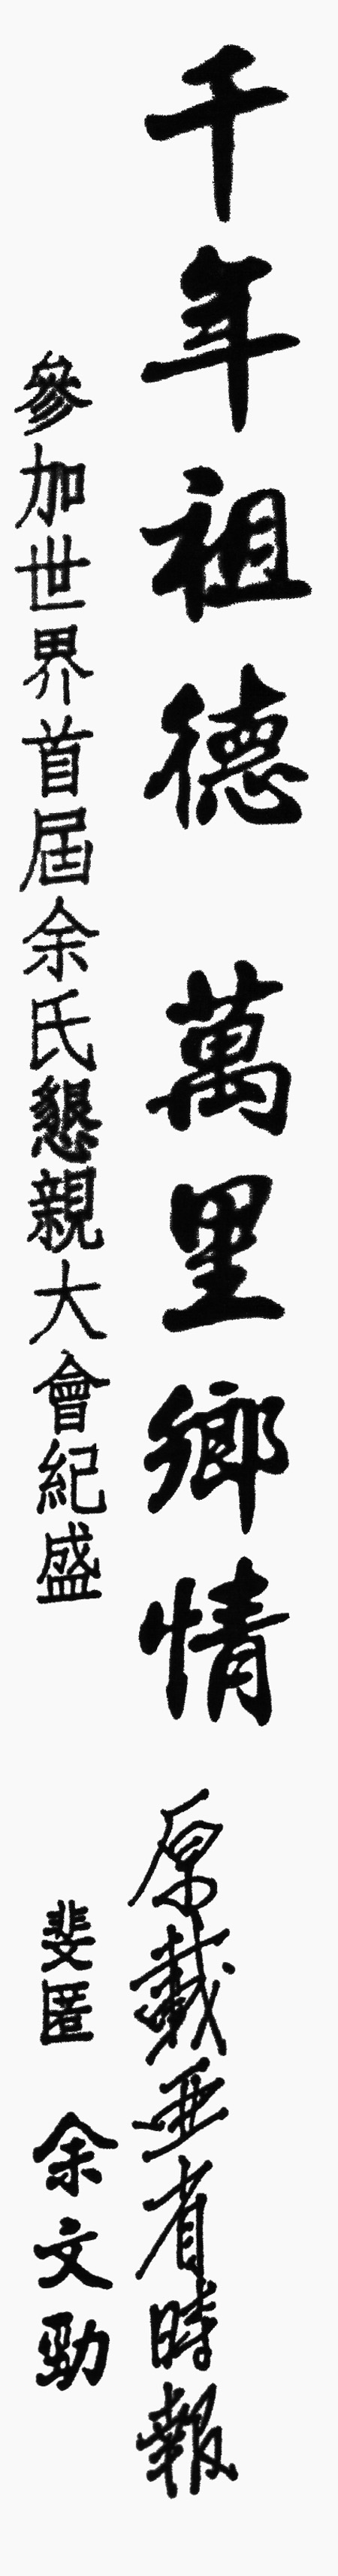 千年祖德 萬里鄉情
原載亚省時報
參加世界首屆余氏懇親大會紀盛
斐匿 余文勁